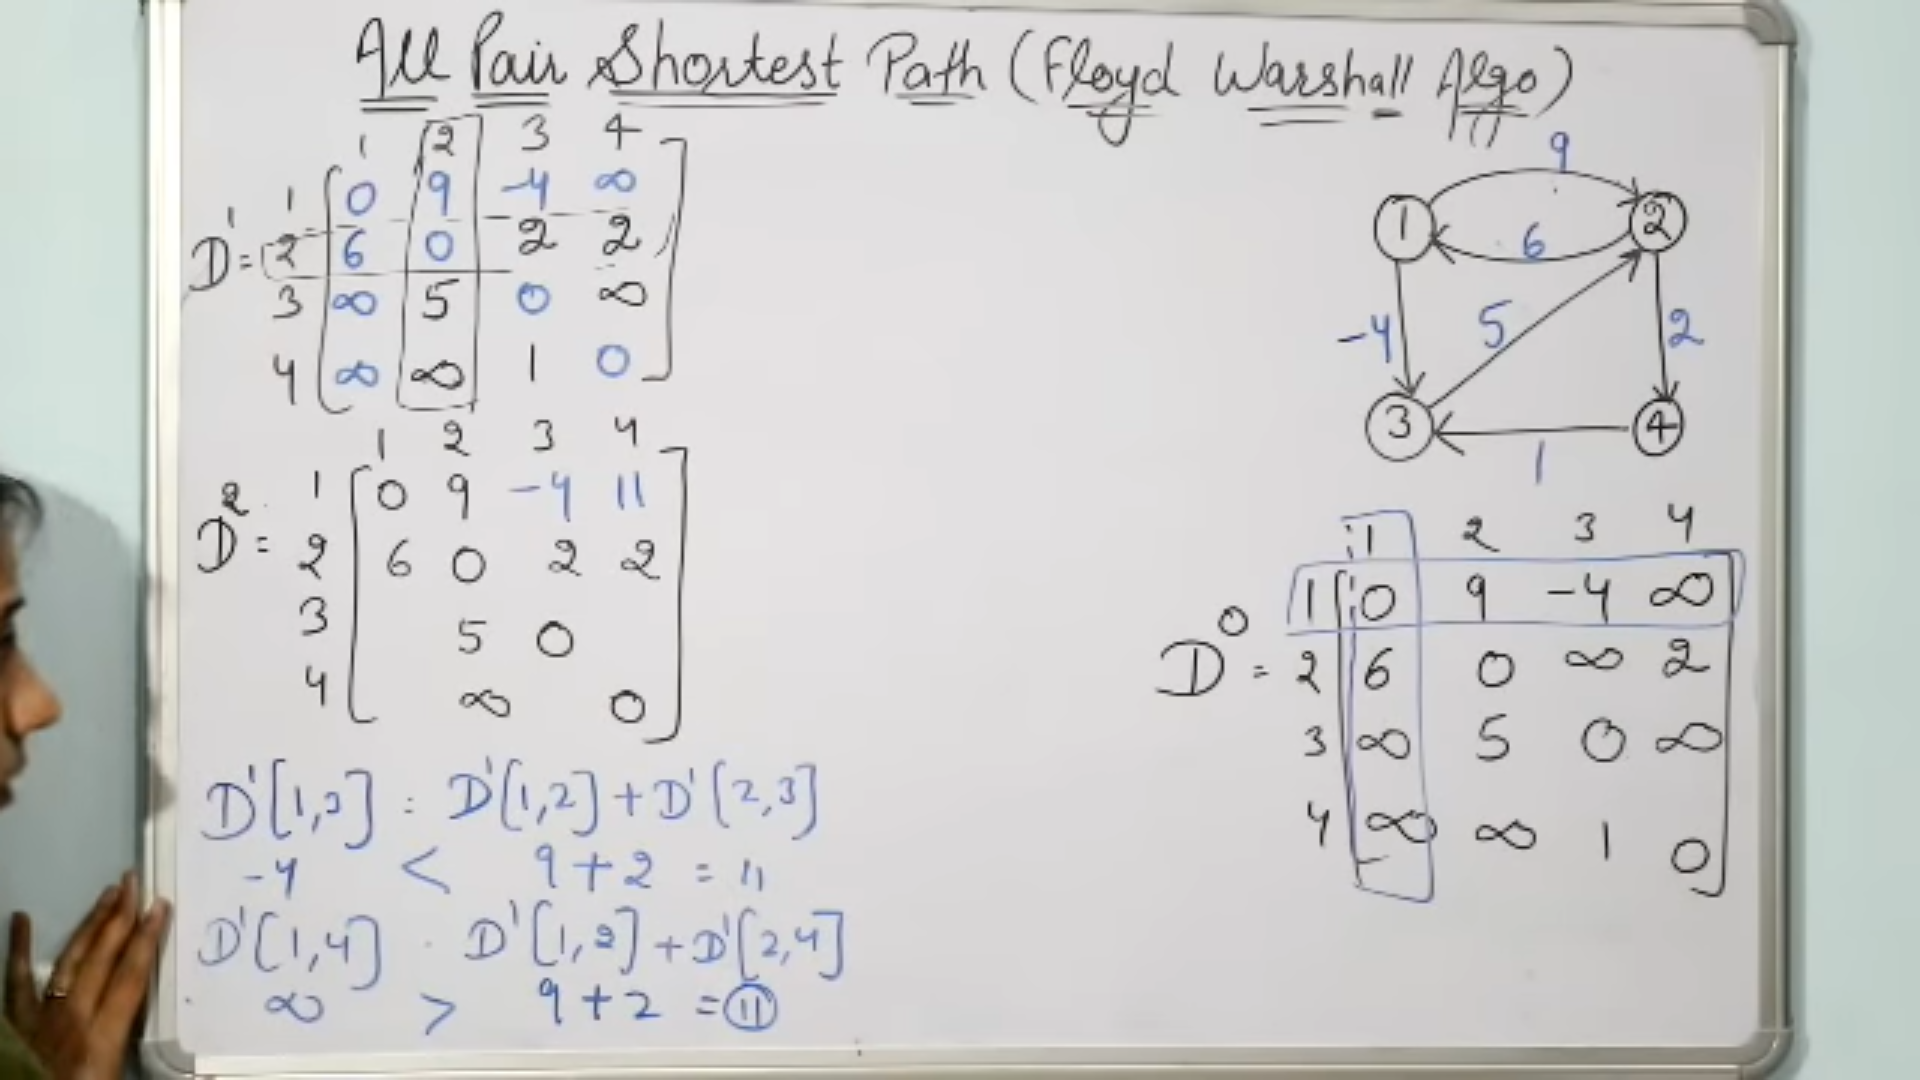 All Pair Shortest Path (Floyd Warshall Algo)
1 2 3 4
D¹ =
1 0 9 -4 ∞
2 6 0 2 2
3 ∞ 5 0 ∞
4 ∞ ∞ 1 0
1 2 3 4
D² =
1 0 9 -4 11
2 6 0 2 2
3 5 0
4 ∞ 0
D¹[1,3] = D¹[1,2] + D¹[2,3]
-4 < 9 + 2 = 11
D¹[1,4] D¹[1,2] + D¹[2,4]
∞ > 9 + 2 = 11
9
1 2
6
-4 5 2
3 4
1
1 2 3 4
D⁰ =
1 0 9 -4 ∞
2 6 0 ∞ 2
3 ∞ 5 0 ∞
4 ∞ ∞ 1 0